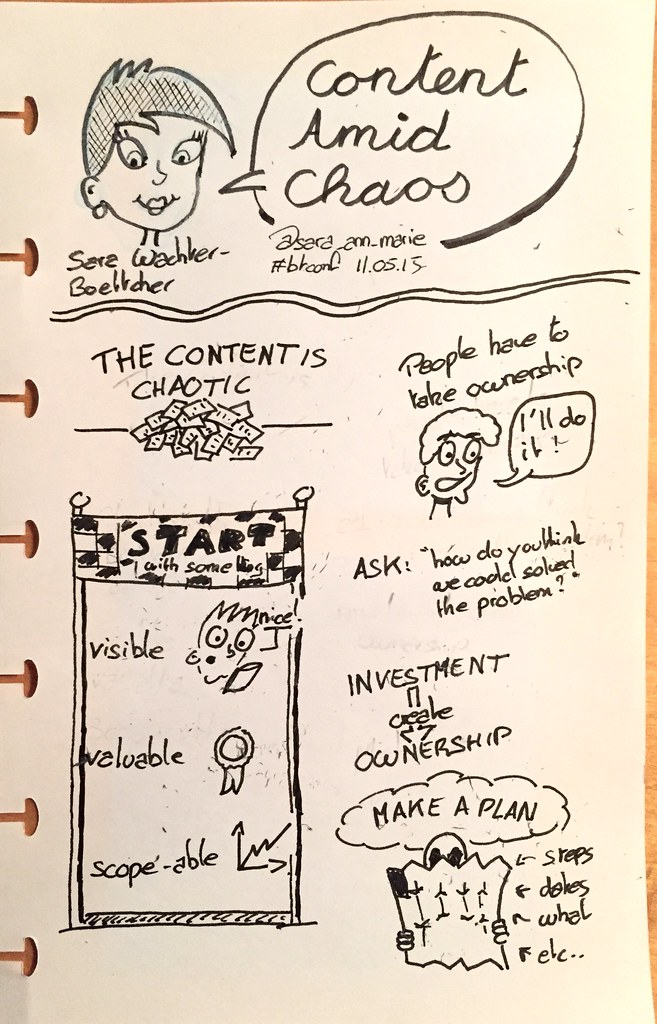 Content
Amid
Chaos
Sara Wachter-
Boettcher
@sara_ann_marie
#btconf 11.05.15
THE CONTENT IS
CHAOTIC
START
with something
visible
nice!
valuable
scope-able
People have to
take ownership
I'll do
it!
ASK: "how do you think
we could solved
the problem?"
INVESTMENT
create
OWNERSHIP
MAKE A PLAN
steps
dates
what
etc..